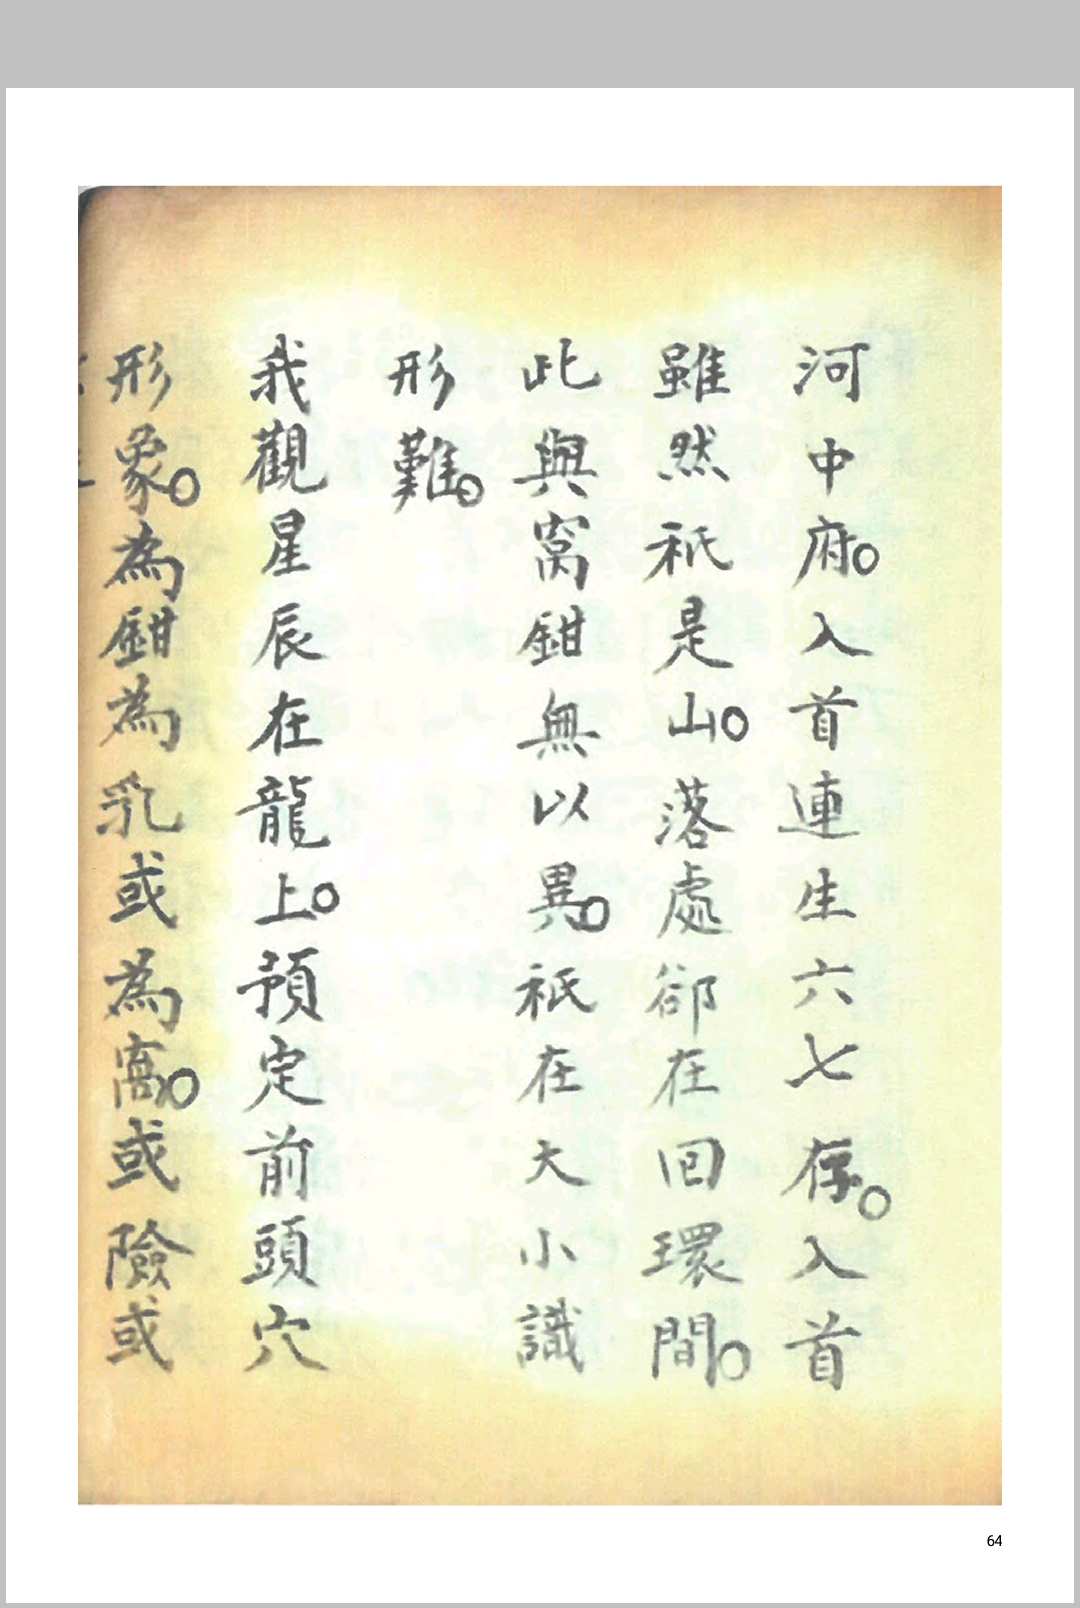 河中府。入首連生六七存。入首
雖然祇是山。落處卻在回環間。
此與窩鉗無以異。祇在大小識
形難。
我觀星辰在龍上。預定前頭穴
形象。為鉗為乳或為窩。或險或
64